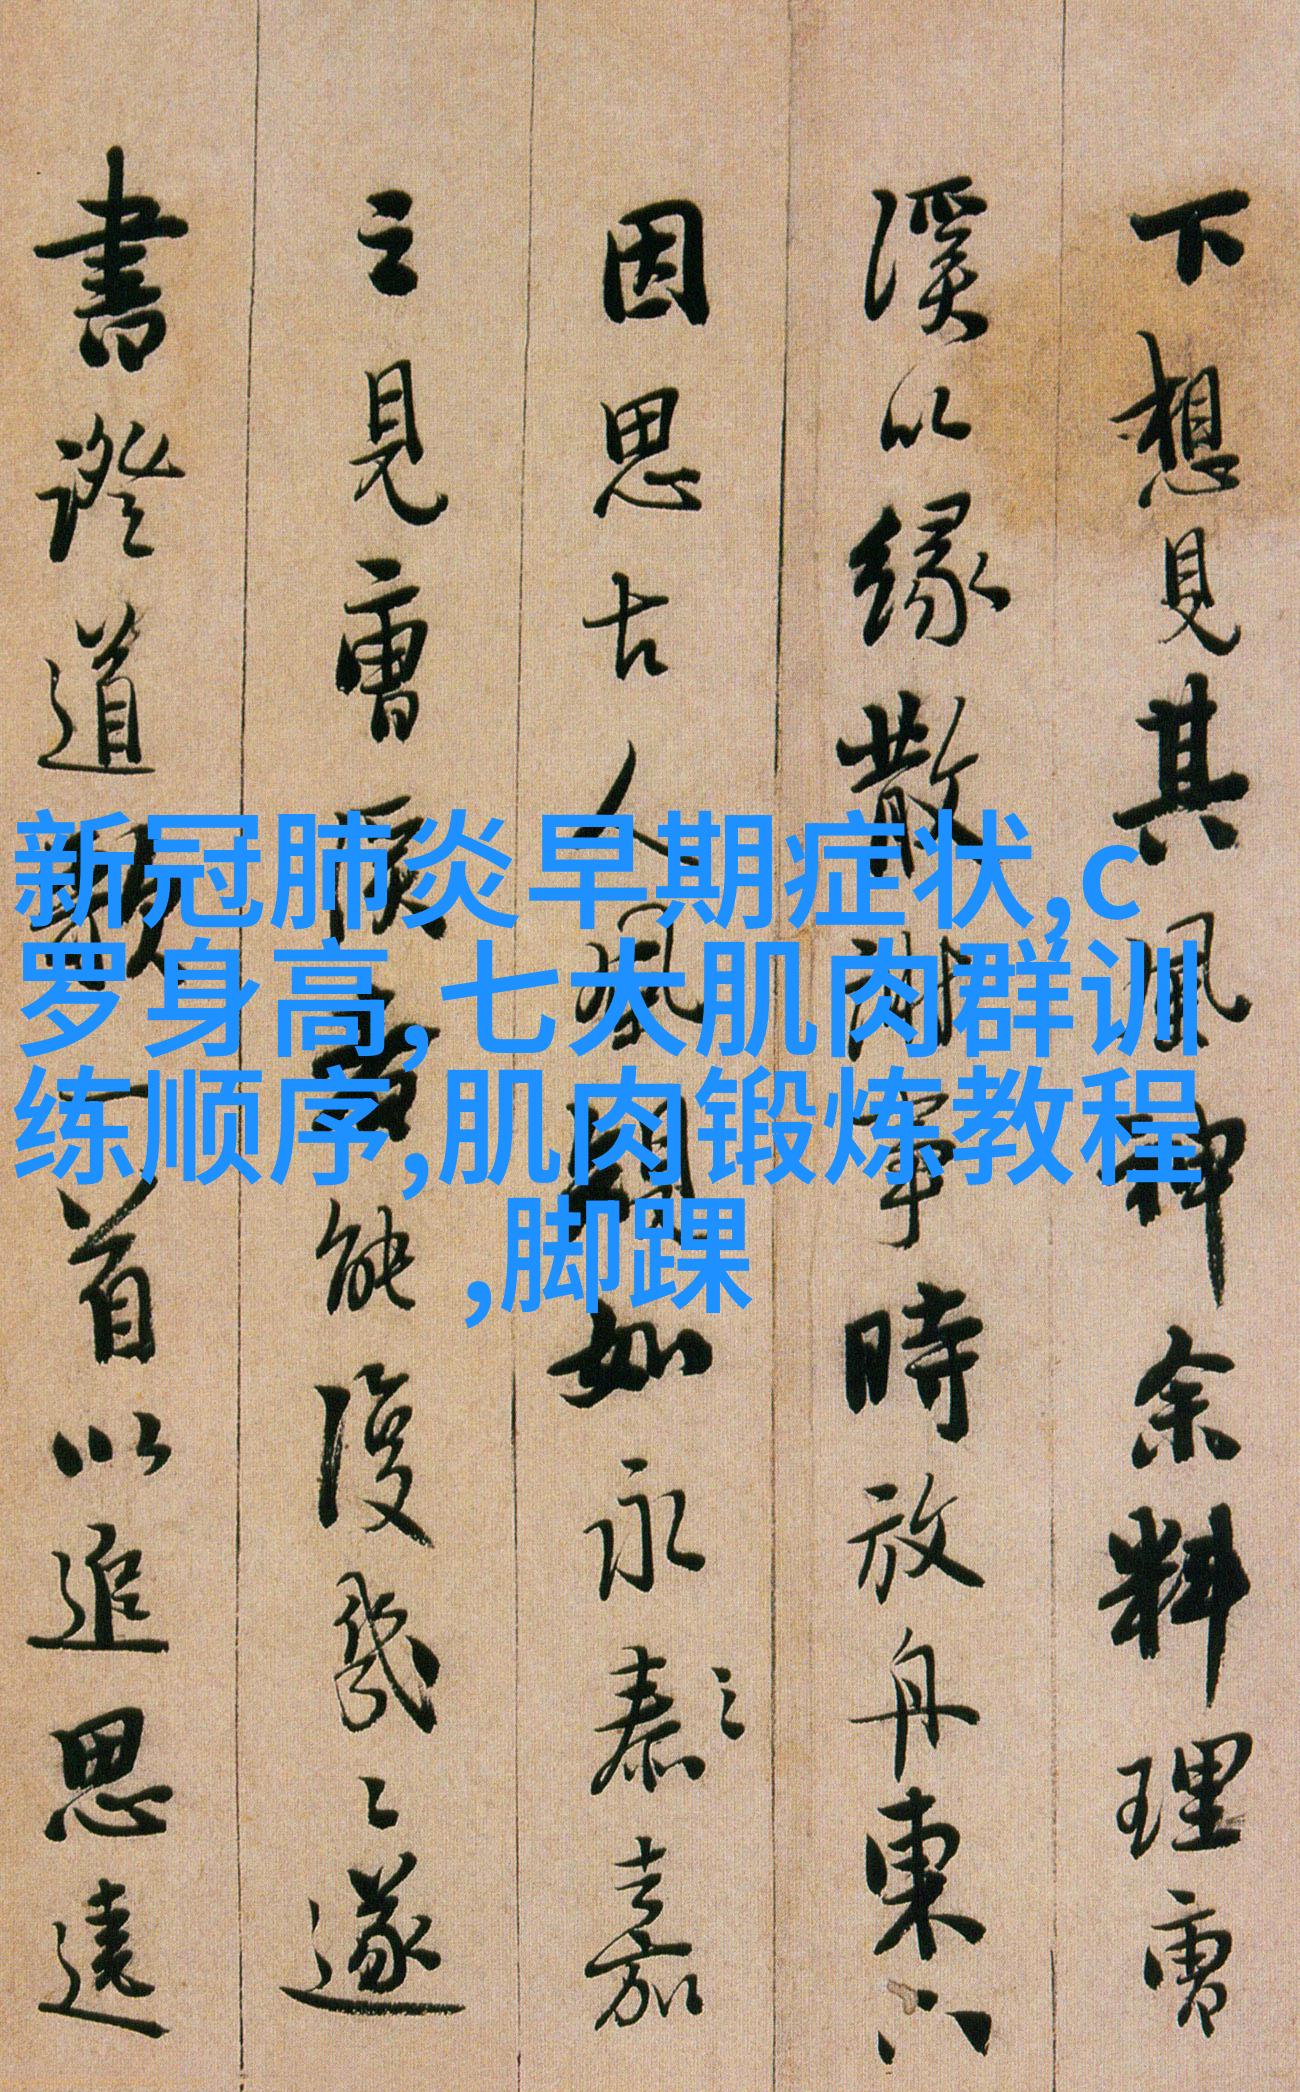 下想見其風神余料理曹
溪以緣散謝事時放舟東
因思古人風期如永泰之嘉
之見曹溪能復幾〻遂
書證道歌一首以追思遠
新冠肺炎早期症状,c
罗身高, 七大肌肉群训
练顺序,肌肉锻炼教程
,脚踝